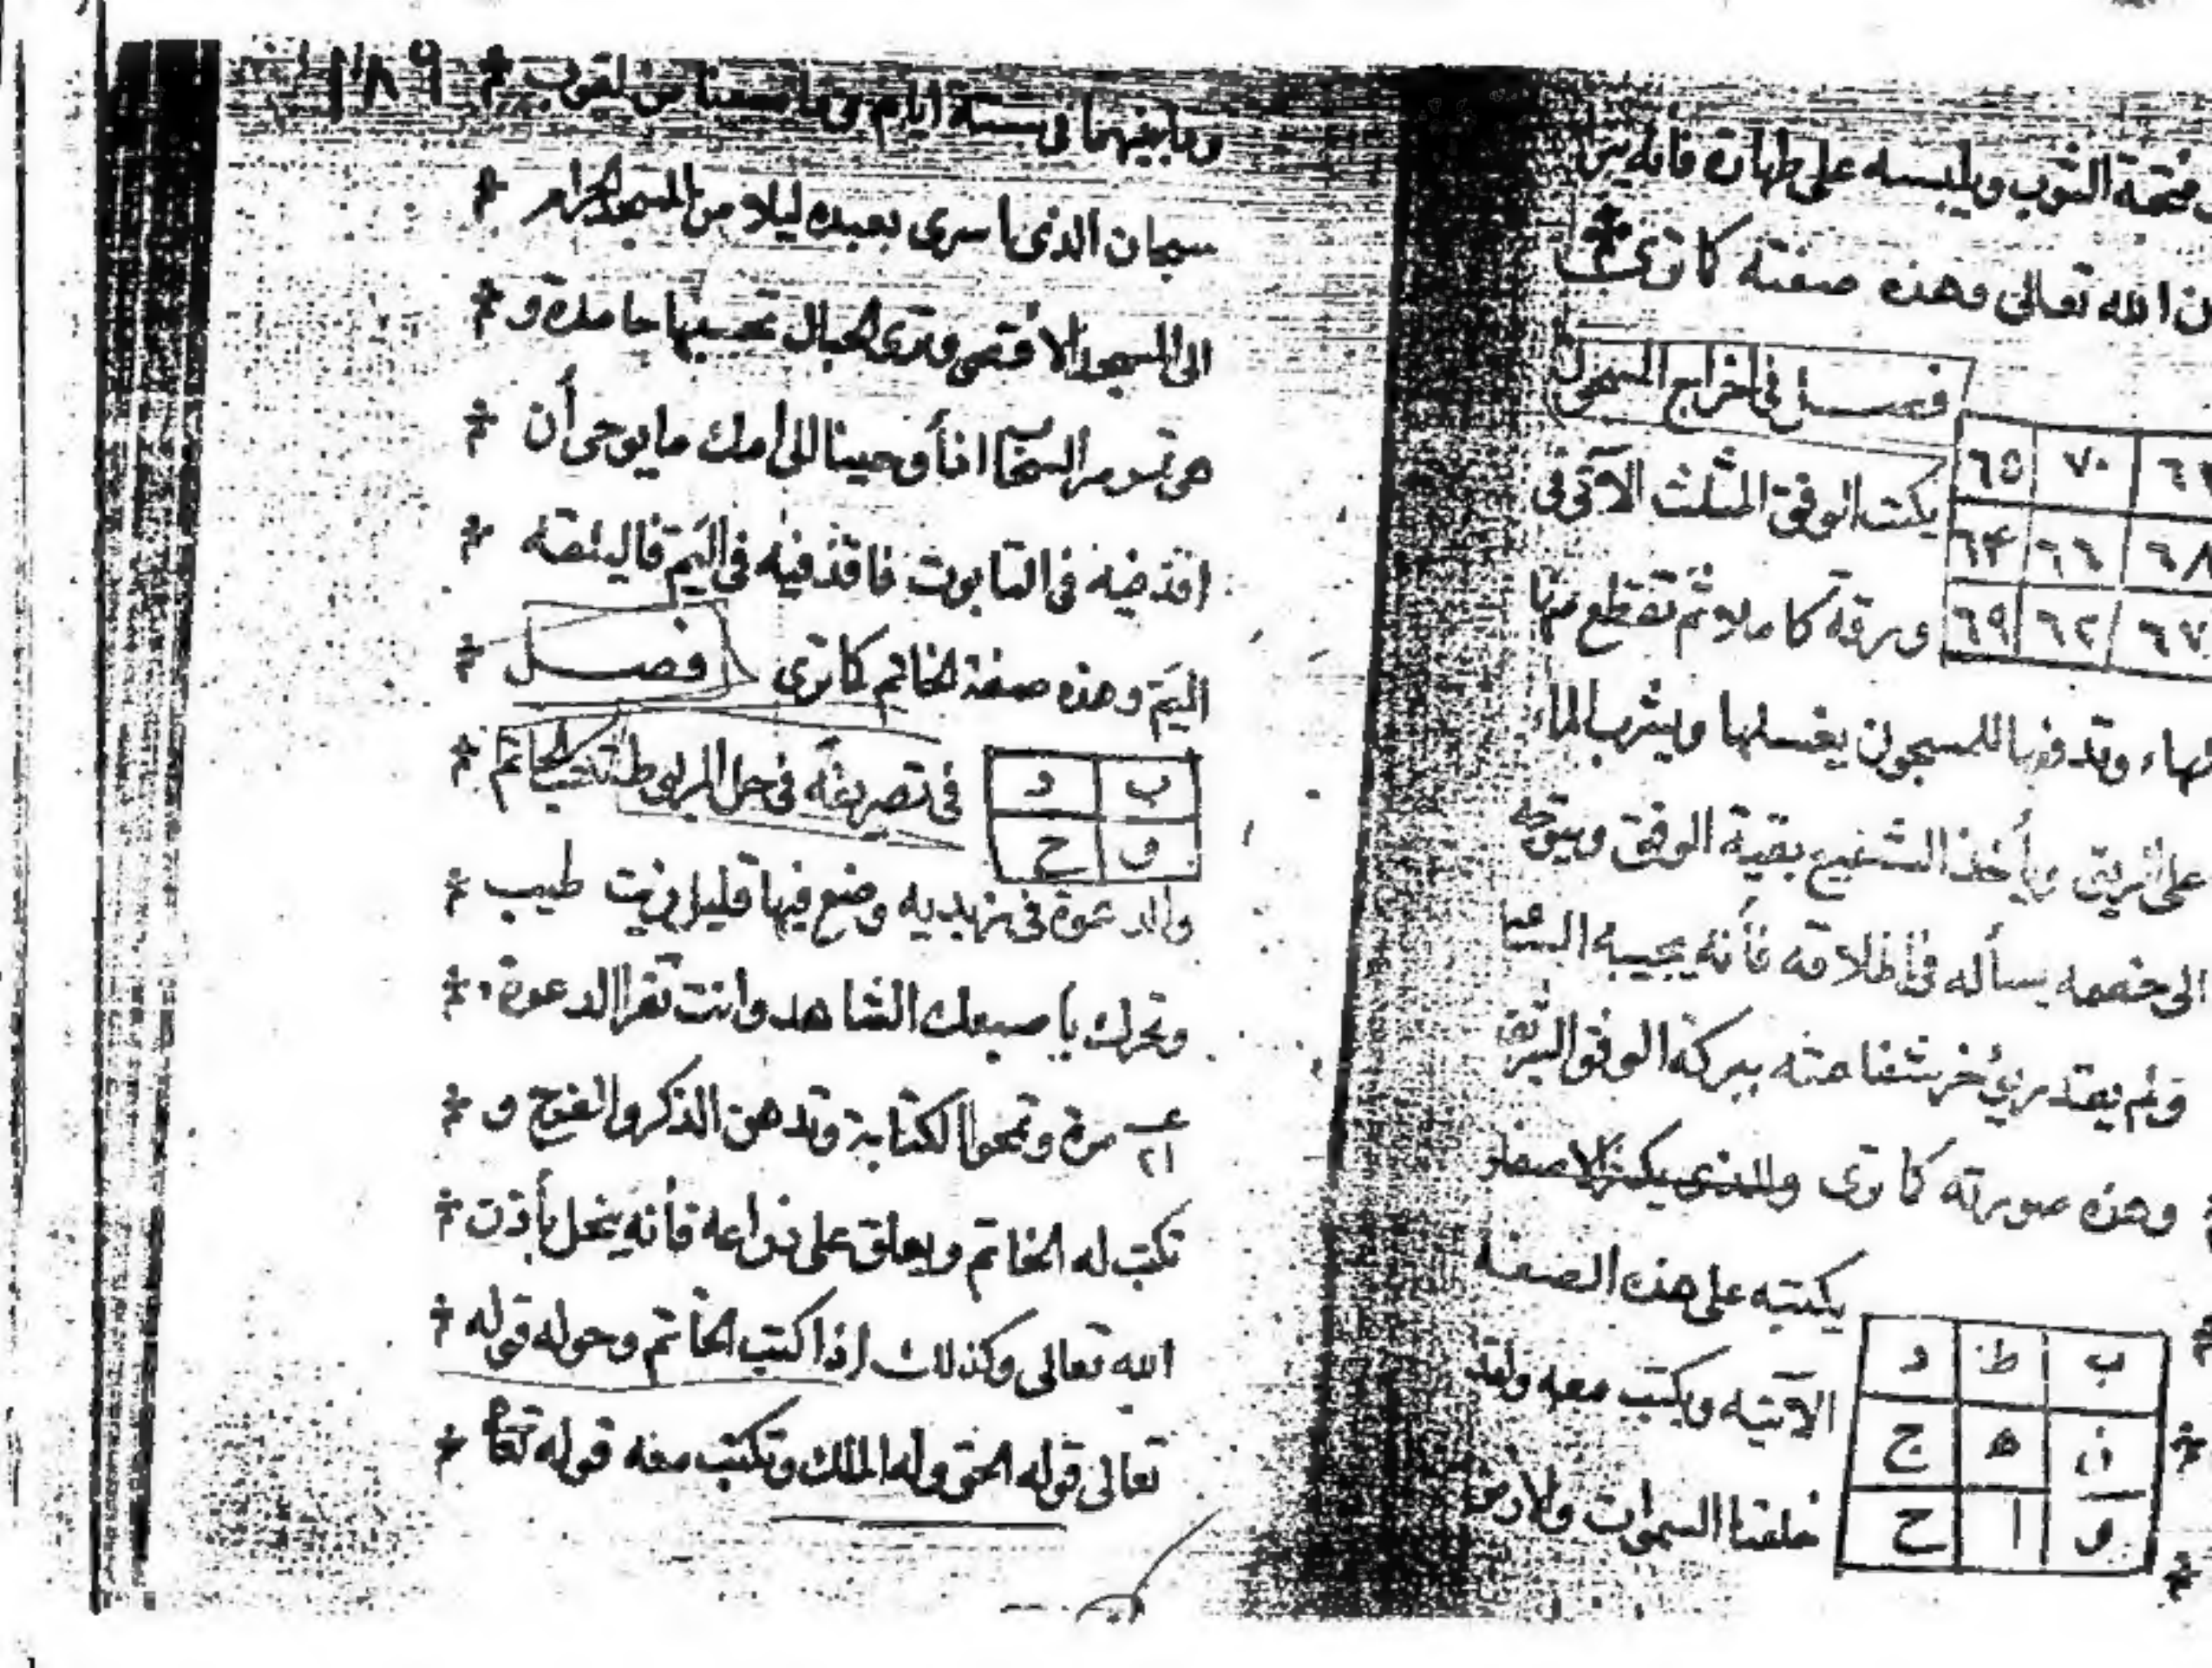 فتحة الثوب ويلبسه على طهارة فانه
ن الله تعالى وهذه صفته كا ترى
فصل فى اخراج المسجون
٦٥ ٧٠
يكتب الوفق المثلث الآتى فى
٦٤ ٦٦ ٦٨
ورقة كاملا ثم تقطع منها
٦٩ ٦٢ ٦٧
هاء وتدفعها للمسجون يغسلها ويشرب الماء
على الريق ويأخذ الشفيع بقية الوفق ويتوجه
الى خصمه يسأله فى اطلاقه فأنه يجيبه
ولم يقدر يؤخر شفاعته ببركة الوفق
وهذه صورته كا ترى والذى يكتب
يكتبه على هذه الصفة
ب ط د
الآتيه ويكتب معه ولقد
ه ج
خلقنا السموات والارض
و ا ح
وما بينهما فى ستة ايام وما مسنا من لغوب * ١٨٩
سبحان الذى اسرى بعبده ليلا من المسجد الحرام *
الى المسجد الاقصى وترى الجبال تحسبها جامدة و *
هى تمر مر السحاب اذ أوحينا الى امك ما يوحى أن *
اقذفيه فى التابوت فاقذفيه فى اليم فاليلقه *
اليم وهذه صفة الخاتم كا ترى فصل *
ب د
فى تصريفه فى حل المربوط تكتب الخاتم *
و ح
والدعوة فى زبديه وضع فيها قليل زيت طيب *
وتحرك با صبعك الشاهد وانت تقرا الدعوة *
٢١ مرة وتمحوا الكتابة وتدهن الذكر والفرج و *
تكتب له الخاتم ويعلق على ذراعه فأنه ينحل بأذن *
الله تعالى وكذلك اذا كتب الخاتم وحوله قوله *
تعالى قوله الحق وله الملك وتكتب معه قوله تعا *